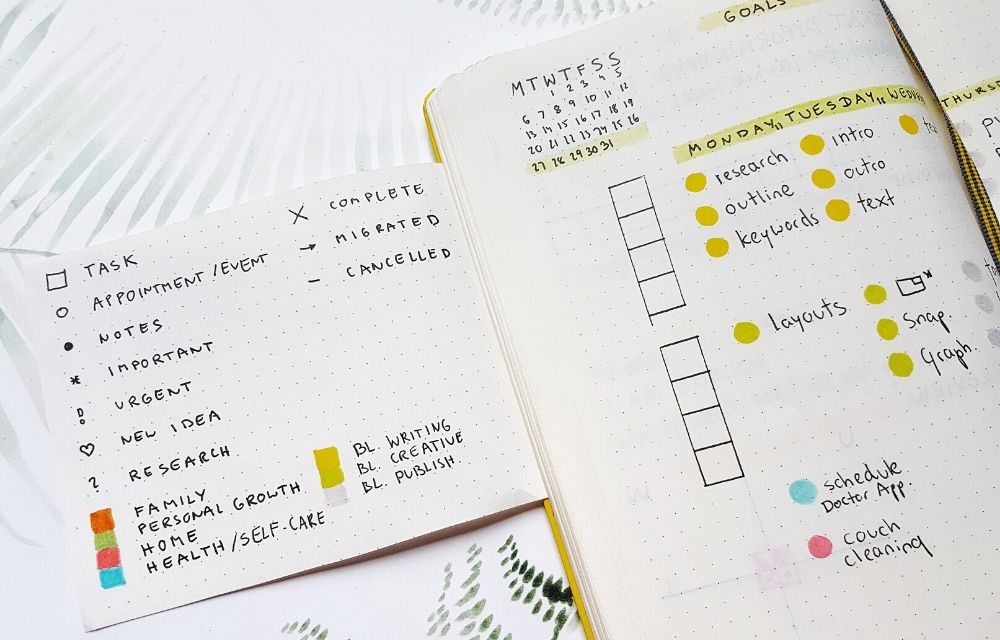 X COMPLETE
→ MIGRATED
– CANCELLED
TASK
APPOINTMENT/EVENT
NOTES
* IMPORTANT
! URGENT
♡ NEW IDEA
? RESEARCH
FAMILY
PERSONAL GROWTH
HOME
HEALTH/SELF-CARE
BL. WRITING
BL. CREATIVE
BL. PUBLISH.
GOALS
M T W T F S S
1 2 3 4 5
6 7 8 9 10 11 12
13 14 15 16 17 18 19
20 21 22 23 24 25 26
27 28 29 30 31
MONDAY,, TUESDAY,,
research
outline
keywords
intro
outro
text
layouts
*
Snap.
Graph.
schedule
Doctor App.
couch
cleaning